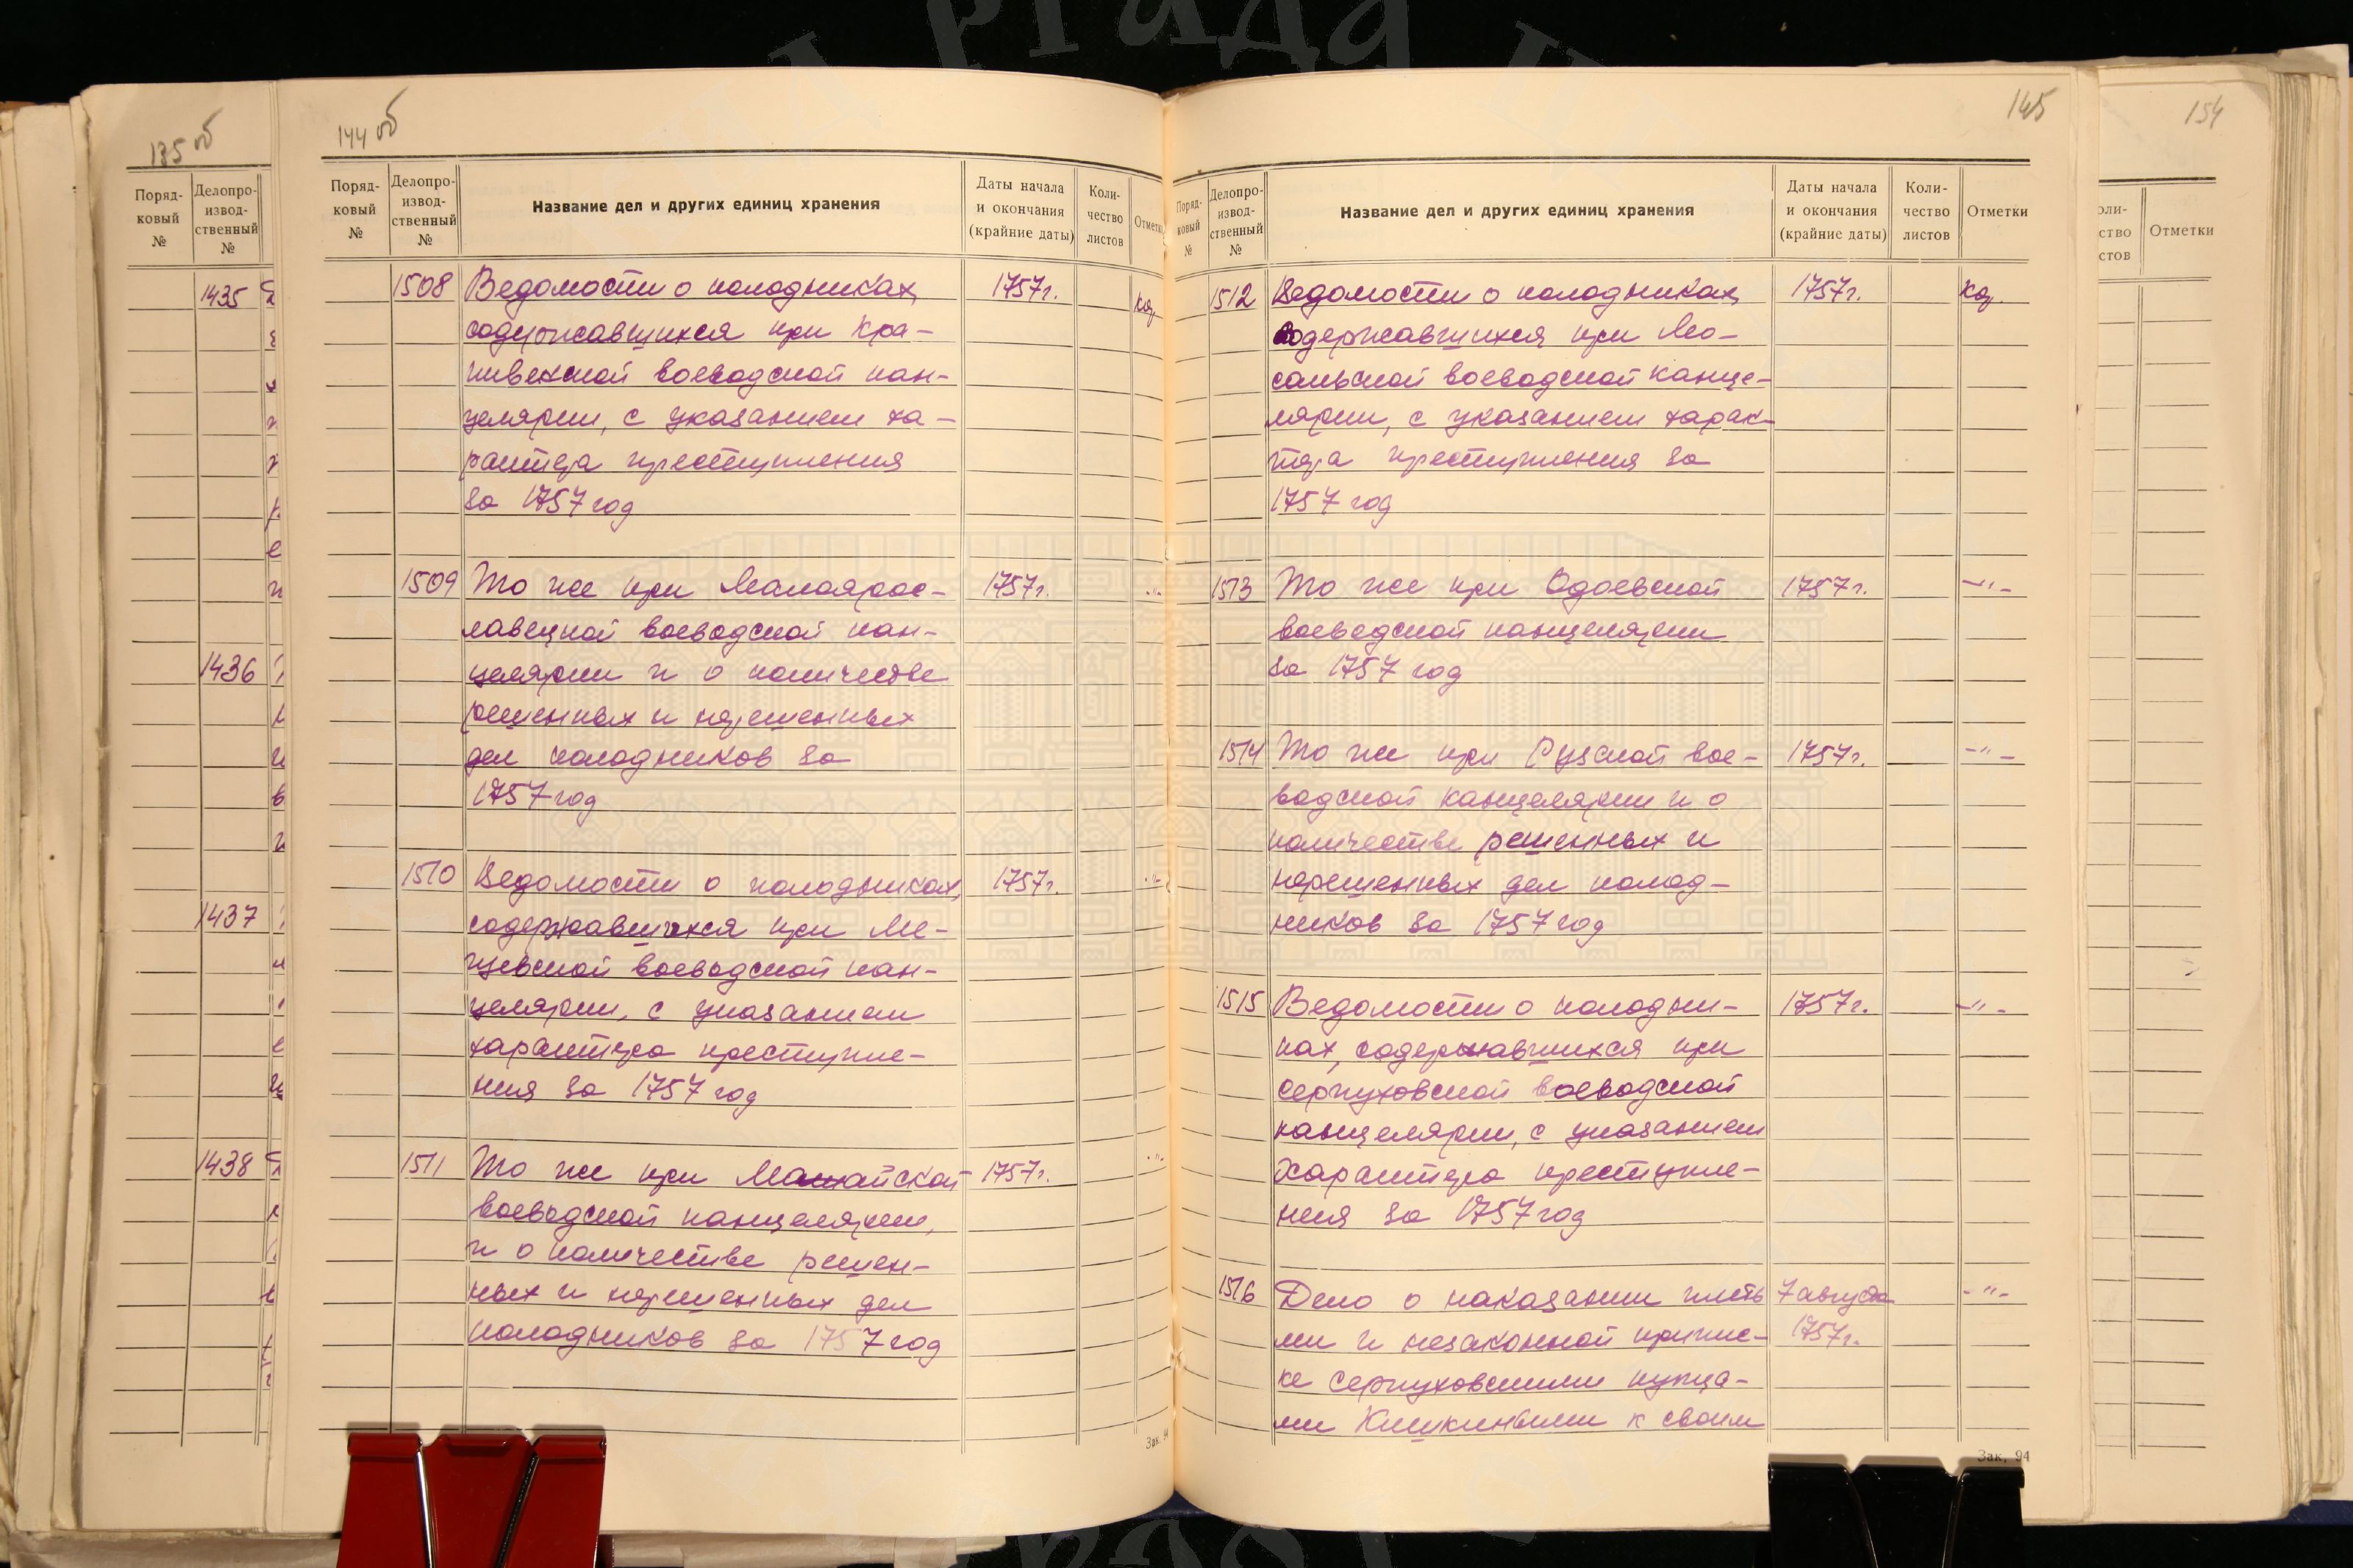 135 об
Поряд-
ковый
№
Делопро-
извод-
ственный
№
1435
1436
1437
1438
144 об
Поряд-
ковый
№
Делопро-
извод-
ственный
№
Название дел и других единиц хранения
Даты начала
и окончания
(крайние даты)
Коли-
чество
листов
Отметки
1508 Ведомости о колодниках, 1757г. кор
содержавшихся при Кра-
пивенской воеводской кан-
целярии, с указанием ха-
рактера преступления
за 1757 год
1509 То же при Малоярос- 1757г. -"-
лавецкой воеводской кан-
целярии и о количестве
решенных и нерешенных
дел колодников за
1757 год
1510 Ведомости о колодниках, 1757г. -"-
содержавшихся при Ме-
щевской воеводской кан-
целярии, с указанием
характера преступле-
ния за 1757 год
1511 То же при Можайской 1757г. -"-
воеводской канцелярии,
и о количестве решен-
ных и нерешенных дел
колодников за 1757 год
Зак. 94
145
Поряд-
ковый
№
Делопро-
извод-
ственный
№
Название дел и других единиц хранения
Даты начала
и окончания
(крайние даты)
Коли-
чество
листов
Отметки
1512 Ведомости о колодниках, 1757г. кор.
содержавшихся при Мо-
сальской воеводской канце-
лярии, с указанием харак-
тера преступления за
1757 год
1513 То же при Одоевской 1757г. -"-
воеводской канцелярии
за 1757 год
1514 То же при Рузской вое- 1757г. -"-
водской канцелярии и о
количестве решенных и
нерешенных дел колод-
ников за 1757 год
1515 Ведомости о колодни- 1757г. -"-
ках, содержавшихся при
серпуховской воеводской
канцелярии, с указанием
характера преступле-
ния за 1757 год
1516 Дело о наказании плеть 7 августа -"-
ми и незаконной припис- 1757г.
ке серпуховскими купца-
ми Кишкиными к своим
Зак. 94
154
оли-
ство
стов
Отметки